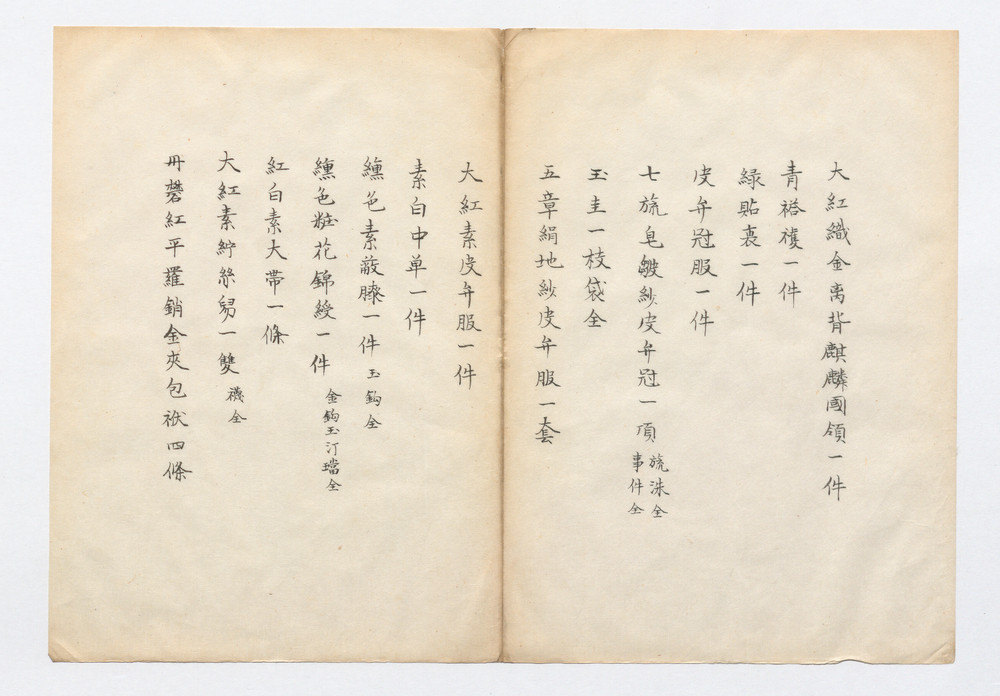 大紅織金离背麒麟圓領一件
青褡𧞤一件
緑貼裏一件
皮弁冠服一件
七旒皂皺紗皮弁冠一頂 旒洙事件全
玉圭一枝袋全
五章絹地紗皮弁服一套
大紅素皮弁服一件
素白中单一件
纁色素蔽膝一件 玉鈎全
纁色粧花錦綬一件 金鈎玉汀璫全
紅白素大帯一條
大紅素紵絲舃一雙 襪全
丹礬紅平羅銷金夾包袱四條